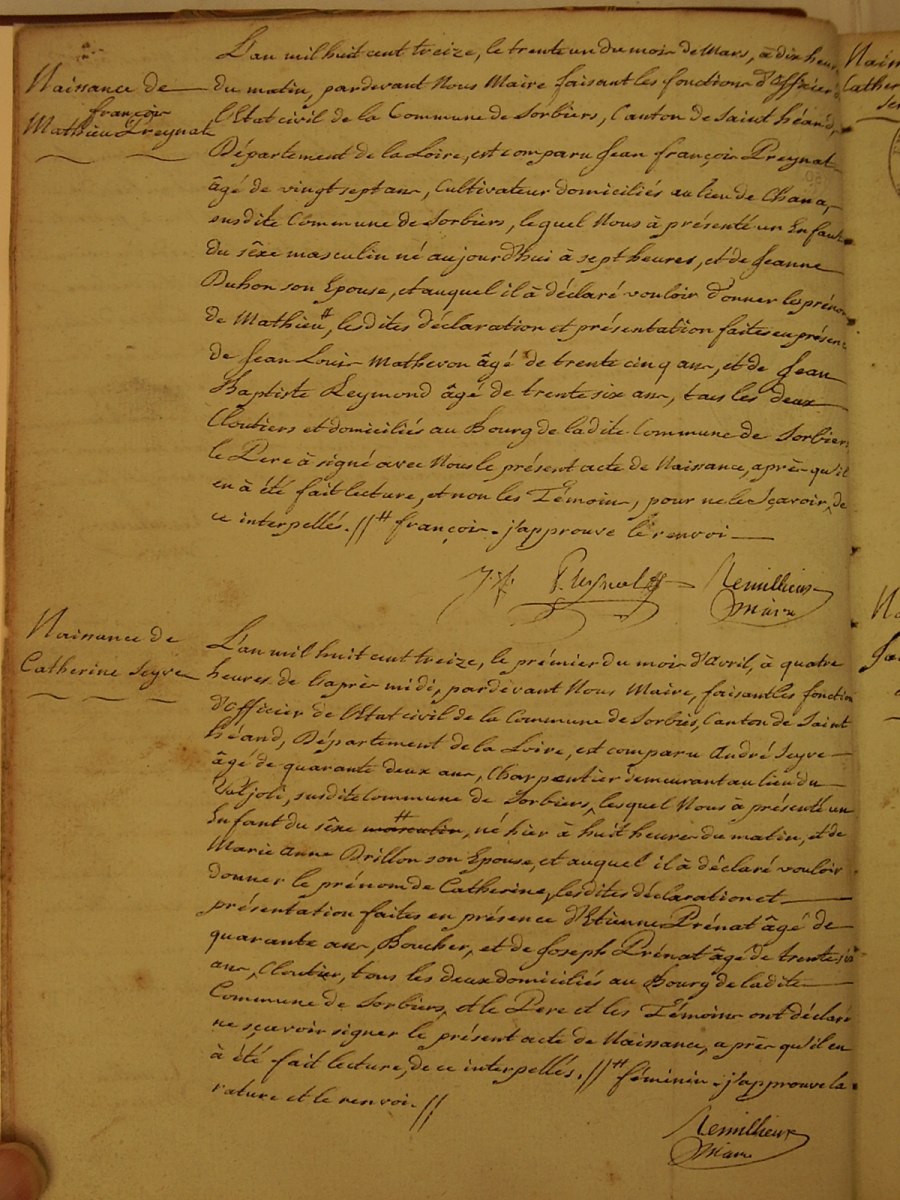 Naissance de
françois
Mathieu Preynat
L'an mil huit cent treize, le trente un du mois de Mars, à dix heur
du matin, pardevant Nous Maire faisant les fonctions d'officier
l'Etat civil de la Commune de Sorbiers, Canton de Saint héand,
Département de la Loire, est comparu Jean françois Preynat
âgé de vingt sept ans, Cultivateur domiciliés au lieu de Chana,
susdite Commune de Sorbiers, lequel Nous à présenté un Enfant
du sèxe masculin né aujourd'hui à sept heures, et de Jeanne
Duhon son Epouse, et auquel il à déclaré vouloir donner les préno
de Mathieu #, lesdites déclaration et présentation faites en présen
de Jean Louis Mathevon âgé de trente cinq ans, et de Jean
Baptiste Reymond âgé de trente six ans, tous les deux
Cloutiers et domiciliés au Bourg de ladite Commune de Sorbiers
le Pere à signé avec Nous le présent acte de Naissance, après qu'il
en à été fait lecture, et non les Témoins, pour ne le sçavoir, de
ce interpellés. // # françois. j'approuve le renvoi
j. f. Preynat Remillieux
Maire
Naissance de
Catherine Seyve
L'an mil huit cent treize, le prémier du mois d'Avril, à quatre
heures de l'après midi, pardevant Nous Maire, faisant les fonction
d'officier de l'Etat civil de la Commune de Sorbiés, Canton de Saint
héand, Département de la Loire, est comparu André Seyve
âgé de quarante deux ans, Charpentier demeurant au lieu du
Valjoli, susdite Commune de Sorbiers, lesquel Nous à présenté un
Enfant du sèxe masculin #, né hier à huit heures du matin, et de
Marie Anne Drillon son Epouse, et auquel il à déclaré vouloir
donner le prénom de Catherine, lesdites déclaration et
présentation faites en présence d'Etienne Prénat âgé de
quarante ans, Boucher, et de Joseph Prénat âgé de trente six
ans, Cloutier, tous les deux domiciliés au Bourg de ladite
Commune de Sorbiers, et le Pere et les Témoins ont déclaré
ne sçavoir signer le présent acte de Naissance, après qu'il en
à été fait lecture, de ce interpellés. // # féminin. j'approuve la
rature et le renvoi. //
Remillieux
Maire